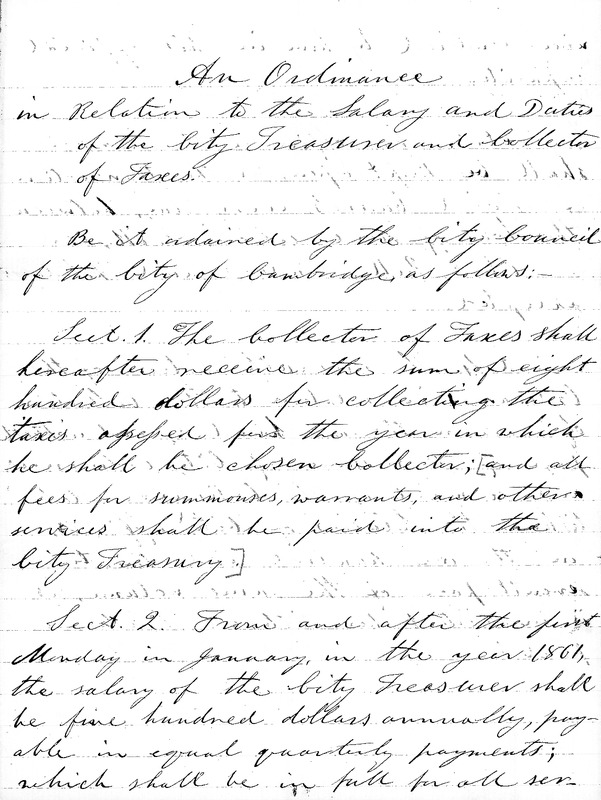 An Ordinance
in Relation to the Salary and Duties
of the City Treasurer and Collector
of Taxes.
Be it ordained by the City Council
of the City of Cambridge, as follows:—
Sect. 1. The Collector of Taxes shall
hereafter receive the sum of eight
hundred dollars for collecting the
taxes assessed for the year in which
he shall be chosen Collector; [and all
fees for summonses, warrants, and other
services shall be paid into the
City Treasury]
Sect. 2. From and after the first
Monday in January, in the year 1861,
the salary of the City Treasurer shall
be five hundred dollars annually, pay-
able in equal quarterly payments;
which shall be in full for all ser-